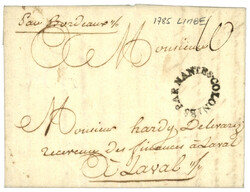 Pau Bordeaux 1785 LIMBE
A Monsieur 10
PAR NANTES COLONIES
Monsieur hardy Delevare
receveur des finances à Laval
À Laval